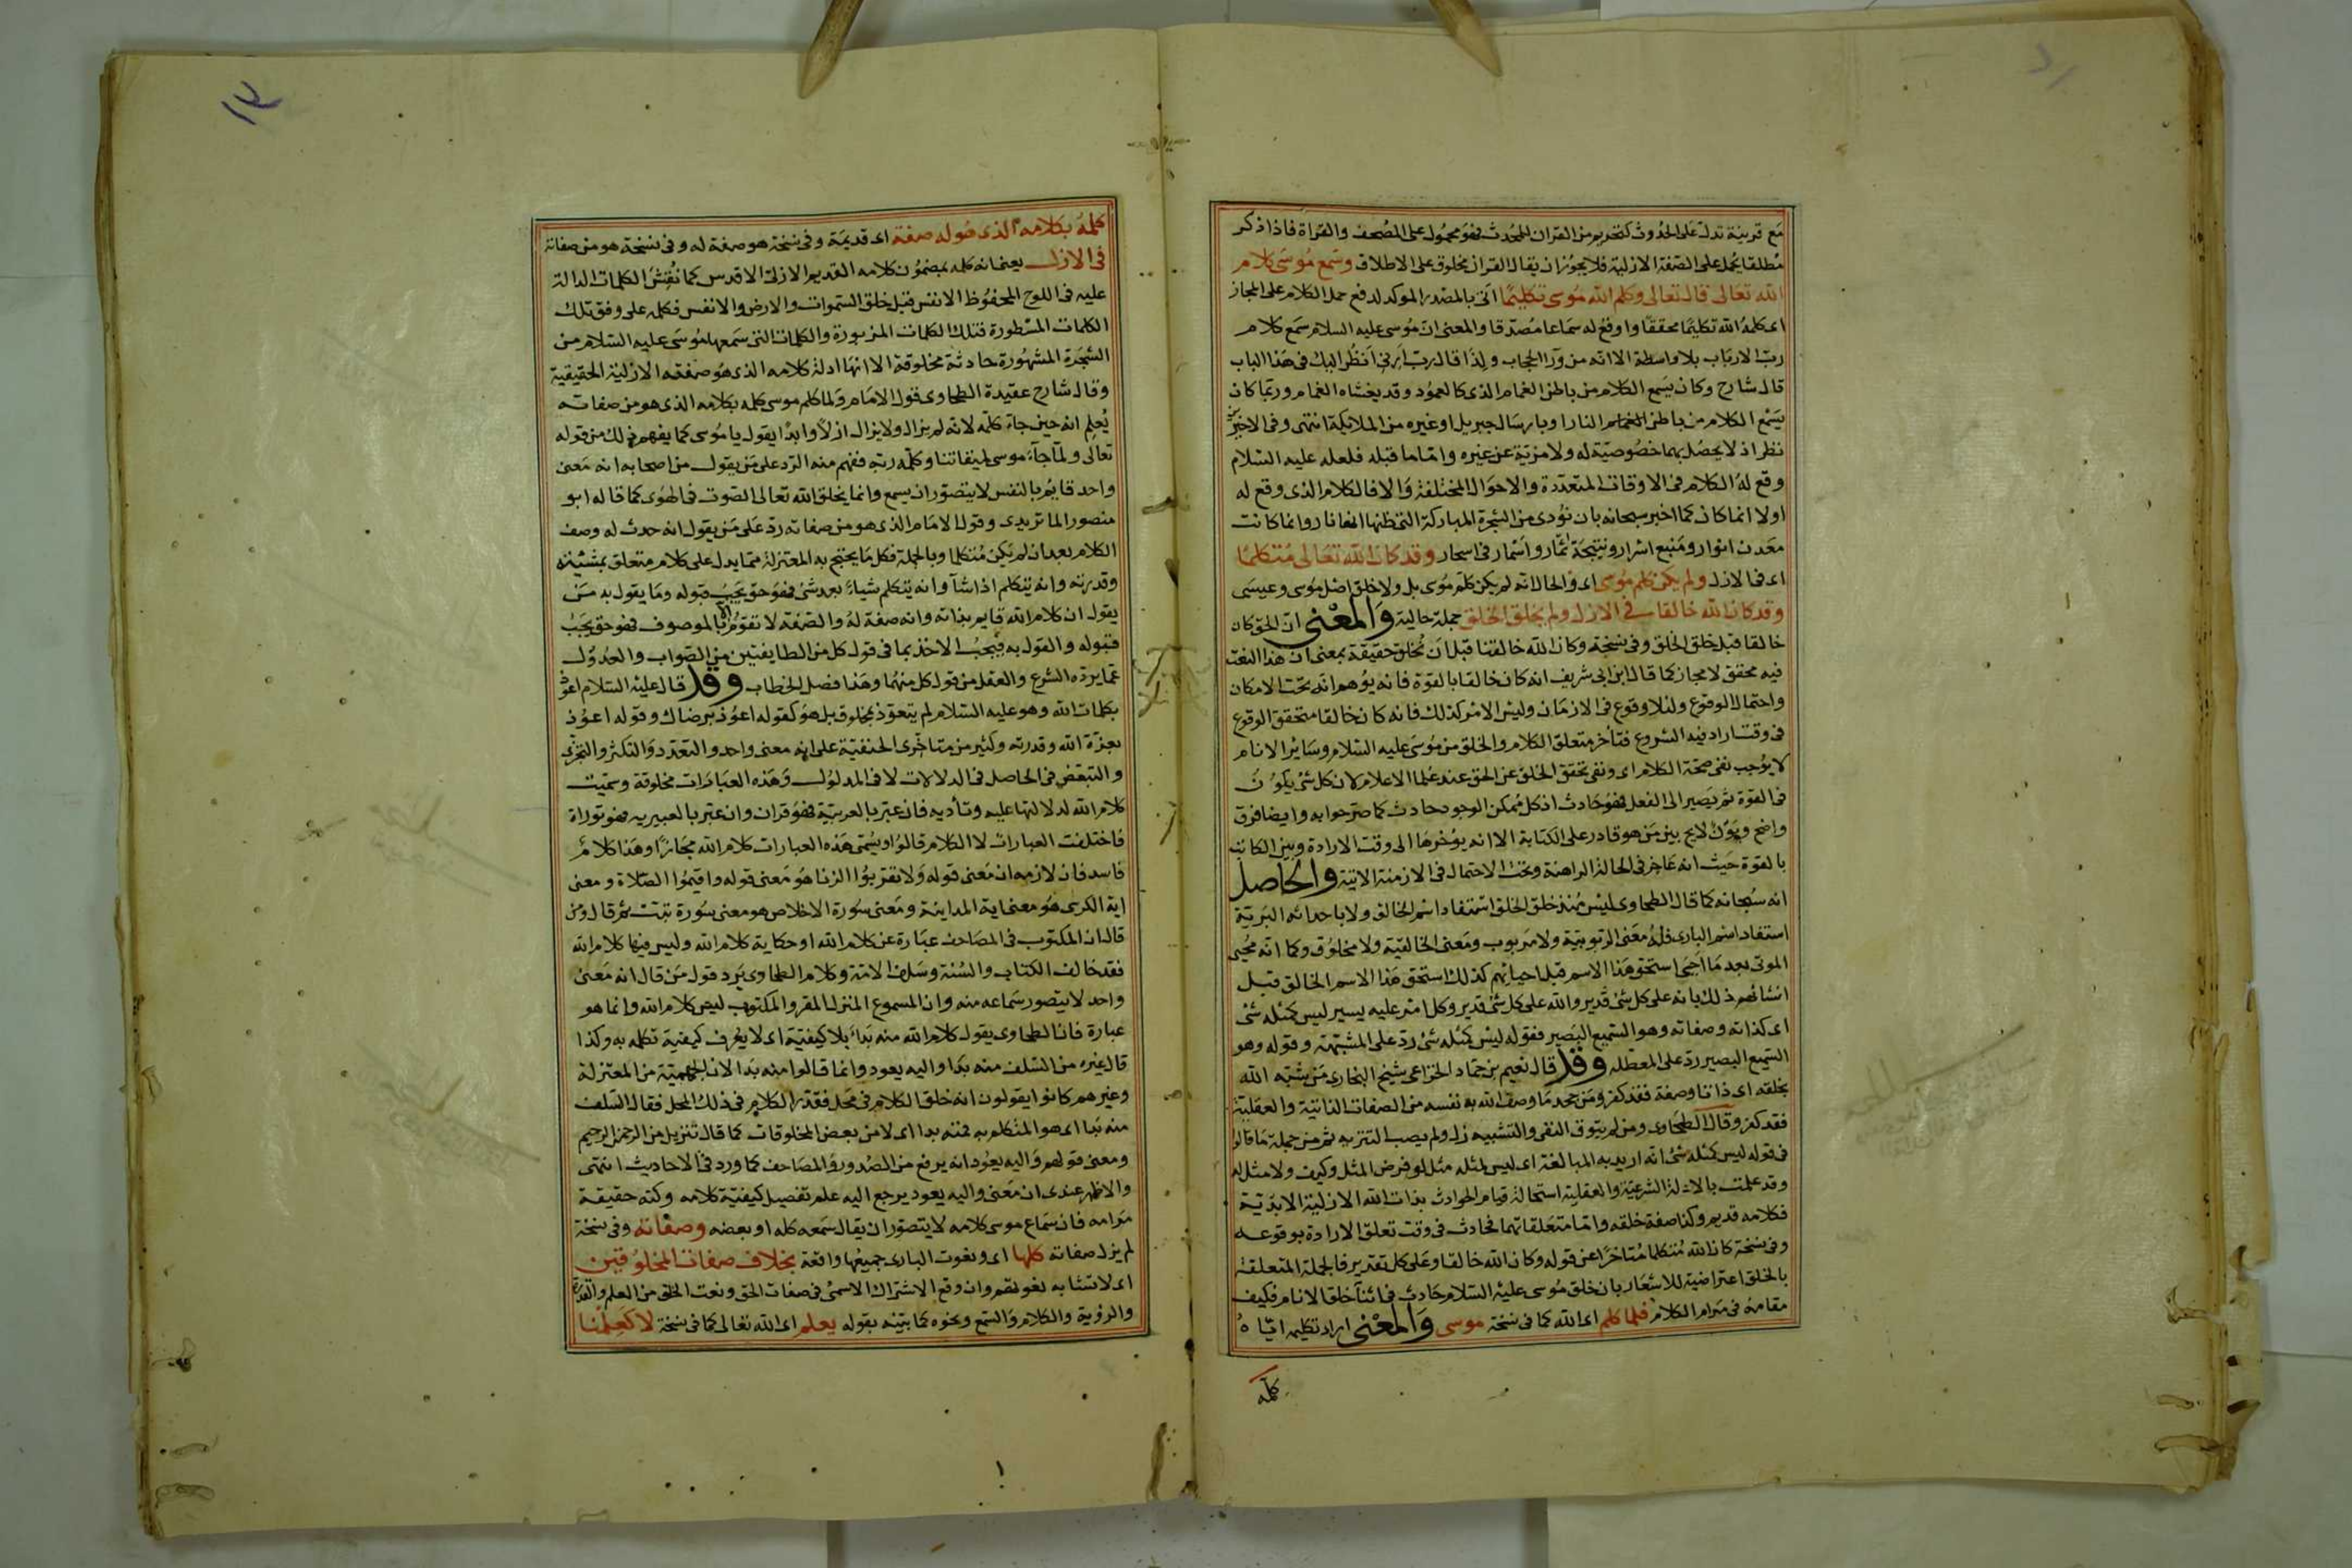 مع قرينة تدل على الحدوث كتحريم من القران للمحدث فهو محمول على المصحف والقراة فاذا ذكر
مطلقا يحمل على الصفة الازلية فلا يجوز ان يقال القران مخلوق على الاطلاق وسمع موسى كلام
الله تعالى قال تعالى وكلم الله موسى تكليما اتى بالمصدر الموكد لدفع حمل الكلام على المجاز
اى كلمه الله تكليما محققا واوقع له سماعا مصدقا والمعنى ان موسى عليه السلام سمع كلام
رب الارباب بلا واسطة الا انه من ورا الحجاب ولذا قال رب ارنى انظر اليك فى هذا الباب
قال شارح وكان يسمع الكلام من باطن الغمام الذى كالعمود وقد يغشاه الغمام وربما كان
يسمع الكلام من باطن النار او بارسال جبريل او غيره من الملائكة انتهى وفى الاخيرين
نظر اذ لا يحصل بهما خصوصية له ولا مزية عن غيره واما ما قبله فلعله عليه السلام
وقع له الكلام فى الاوقات المتعددة والاحوال المختلفة والا فالكلام الذى وقع له
اولا انما كان كما اخبر سبحانه بان نودى من الشجرة المباركة التى ظنها انها نار وانما كانت
معدن انوار ومنبع اسرار ونتيجة اثمار واسمار فى اسحار وقد كان الله تعالى متكلما
اى فى الازل ولم يكن كلم موسى اى والحال انه لم يكن كلم موسى بل ولا خلق اصل موسى وعيسى
وقد كان الله خالقا فى الازل ولم يخلق الخلق جملة حالية والمعنى ان الحق كان
خالقا قبل خلق الخلق وفى نسخة وكان الله خالقنا قبل ان نخلق حقيقة بمعنى ان هذا النعت
فيه محقق لا مجاز كما قال ابن ابى شريف انه كان خالقا بالقوة فانه يوهم انه تحت الامكان
واحتمال الوقوع ولا وقوع فى الازمان وليس الامر كذلك فانه كان خالقا متحقق الوقوع
فى وقت اراد فيه الشروع فتأخر متعلق الكلام والخلق من موسى عليه السلام وسائر الانام
لا يوجب نفى صحة الكلام اى ونفى تحقق الخلق عن الحق عند علما الاعلام لان كل شئ يكون
فى القوة ثم يصير الى الفعل فهو حادث اذ كل ممكن الوجود حادث كما صرحوا به وايضا فرق
واضح وبون لايح بين من هو قادر على الكتابة الا انه يؤخرها الى وقت الارادة وبين الكاتب
بالقوة حيث انه عاجز فى الحالة الراهنة وتحت الاحتمال فى الازمنة الاتية والحاصل
انه سبحانه كما قال الطحاوى ليس منذ خلق الخلق استفاد اسم الخالق ولا باحداثه البرية
استفاد اسم البارى فله معنى الربوبية ولا مربوب ومعنى الخالقية ولا مخلوق وكما انه محيى
الموتى بعد ما احيى استحق هذا الاسم قبل احيائهم كذلك استحق هذا الاسم الخالق قبل
انشائهم ذلك بانه على كل شئ قدير والله على كل شئ قدير وكل امر عليه يسير ليس كمثله شئ
اى كذاته وصفاته وهو السميع البصير فقوله ليس كمثله شئ رد على المشبهة وقوله وهو
السميع البصير رد على المعطله وقد قال نعيم بن حماد الخزاعى شيخ البخارى من شبه الله
بخلقه اى ذاتا وصفة فقد كفر ومن جحد ما وصف الله به نفسه من الصفات الذاتية والعقلية
فقد كفر وقال الطحاوى ومن لم يتوق النفى والتشبيه زل ولم يصب التنزيه ثم من جملة ما قالوا
فى قوله ليس كمثله شئ انه اريد به المبالغة اى ليس لمثله مثل لو فرض المثل وكيف ولا مثل له
وقد علمت بالادلة الشرعية والعقلية استحالة قيام الحوادث بذات الله الازلية الابدية
فكلامه قديم وكذا صفة خلقه واما متعلقاتهما فحادث فى وقت تعلق الارادة بوقوعه
وفى نسخة كان الله متكلما متاخرا عن قوله وكان الله خالقا وعلى كل تقدير فالجملة المتعلقة
بالخلق اعتراضية للاشعار بان خلق موسى عليه السلام حادث فى اثناء خلق الانام فكيف
مقامه فى مرام الكلام فلما كلم اى الله كما فى نسخة موسى والمعنى اراد تكليمه اياه
كلمه
١٣
كلمه بكلامه الذى هو له صفة اى قديمة وفى نسخة هو صفة له وفى نسخة هو من صفاته
فى الازل يعنى انه كلمه بمضمون كلامه القديم الازلى الاقدس كما نقش الكلمات الدالة
عليه فى اللوح المحفوظ الانفس قبل خلق السموات والارض والانفس فكلمه على وفق تلك
الكلمات المسطورة فتلك الكلمات المزبورة والكلمات التى سمعها موسى عليه السلام من
الشجرة المشهورة حادثة مخلوقة الا انها ادلة كلامه الذى هو صفته الازلية الحقيقية
وقال شارح عقيدة الطحاوى قول الامام ولما كلم موسى كلمه بكلامه الذى هو من صفاته
يعلم انه حين جاء كلمه لانه لم يزل ولا يزال ازلا وابدا يقول يا موسى كما يفهم ذلك من قوله
تعالى ولما جاء موسى لميقاتنا وكلمه ربه ففهم منه الرد على من يقول من اصحابه انه معنى
واحد قايم بالنفس لا يتصور ان يسمع وانما يخلق الله تعالى الصوت فى الهوى كما قاله ابو
منصور الماتريدى وقول الامام الذى هو من صفاته رد على من يقول انه حدث له وصف
الكلام بعد ان لم يكن متكلما وبالجملة فكل ما يحتج به المعتزلة مما يدل على كلام متعلق بمشيئته
وقدرته وانه يتكلم اذا شآ وانه يتكلم شياء بعد شئ فهو حق يجب قبوله وما يقول به من
يقول ان كلام الله قايم بذاته وانه صفة له والصفة لا تقوم الا بالموصوف فهو حق يجب
قبوله والقول به فيجب الاخذ بما فى قول كل من الطايفتين من الصواب والعدول
عما يرده الشرع والعقل من قول كل منهما وهذا فصل الخطاب وقد قال عليه السلام اعوذ
بكلمات الله وهو عليه السلام لم يتعوذ بمخلوق بل هو كقوله اعوذ برضاك وقوله اعوذ
بعزة الله وقدرته وكثير من متاخرى الحنفية على انه معنى واحد والتعدد والتكثر والتجزى
والتبعض فى الحاصل فى الدلالات لا فى المدلول وهذه العبارات مخلوقة وسميت
كلام الله لدلالتها عليه وتأديه فان عبر بالعربية فهو قران وان عبر بالعبيريه فهو توراة
فاختلفت العبارات لا الكلام قالوا ويسمى هذه العبارات كلام الله مجازا وهذا كلام
فاسد فان لازمه ان معنى قوله ولا تقربوا الزنا هو معنى قوله واقيموا الصلاة ومعنى
اية الكرسى هو معنى اية المداينة ومعنى سورة الاخلاص هو معنى سورة تبت ثم قال ومن
قال ان المكتوب فى المصاحف عبارة عن كلام الله او حكاية كلام الله وليس فيها كلام الله
فقد خالف الكتاب والسنة وسلف الامة وكلام الطحاوى يرد قول من قال انه معنى
واحد لا يتصور سماعه منه وان المسموع المنزل المقرو المكتوب ليس كلام الله وانما هو
عبارة فان الطحاوى يقول كلام الله منه بداء بلا كيفية اى لا يعرف كيفية تكلمه به وكذا
قال غيره من السلف منه بدا واليه يعود وانما قالوا منه بدا لان الجهمية من المعتزلة
وغيرهم كانوا يقولون انه خلق الكلام فى محل فقد را الكلام فى ذلك المحل فقال السلف
منه بدا اى هو المتكلم به فمنه بدا اى لا من بعض المخلوقات كما قال تنزيل من الرحمن الرحيم
ومعنى قولهم واليه يعود انه يرفع من الصدور والمصاحف كما ورد فى الاحاديث انتهى
والاظهر عندى ان معنى واليه يعود يرجع اليه علم تفصيل كيفية كلامه وكنه حقيقة
مرامه فان سماع موسى كلامه لا يتصور ان يقال سمعه كله او بعضه وصفاته وفى نسخة
لم يزل صفاته كلها اى ونعوت البارى جميعها واقعة بخلاف صفات المخلوقين
اى لا تشابه نعوتهم وان وقع الاشتراك الاسمى فى صفات الحق ونعت الخلق من العلم والقدرة
والرؤية والكلام والسمع ونحوه كما بينه بقوله يعلم اى الله تعالى كما فى نسخة لا كعلمنا